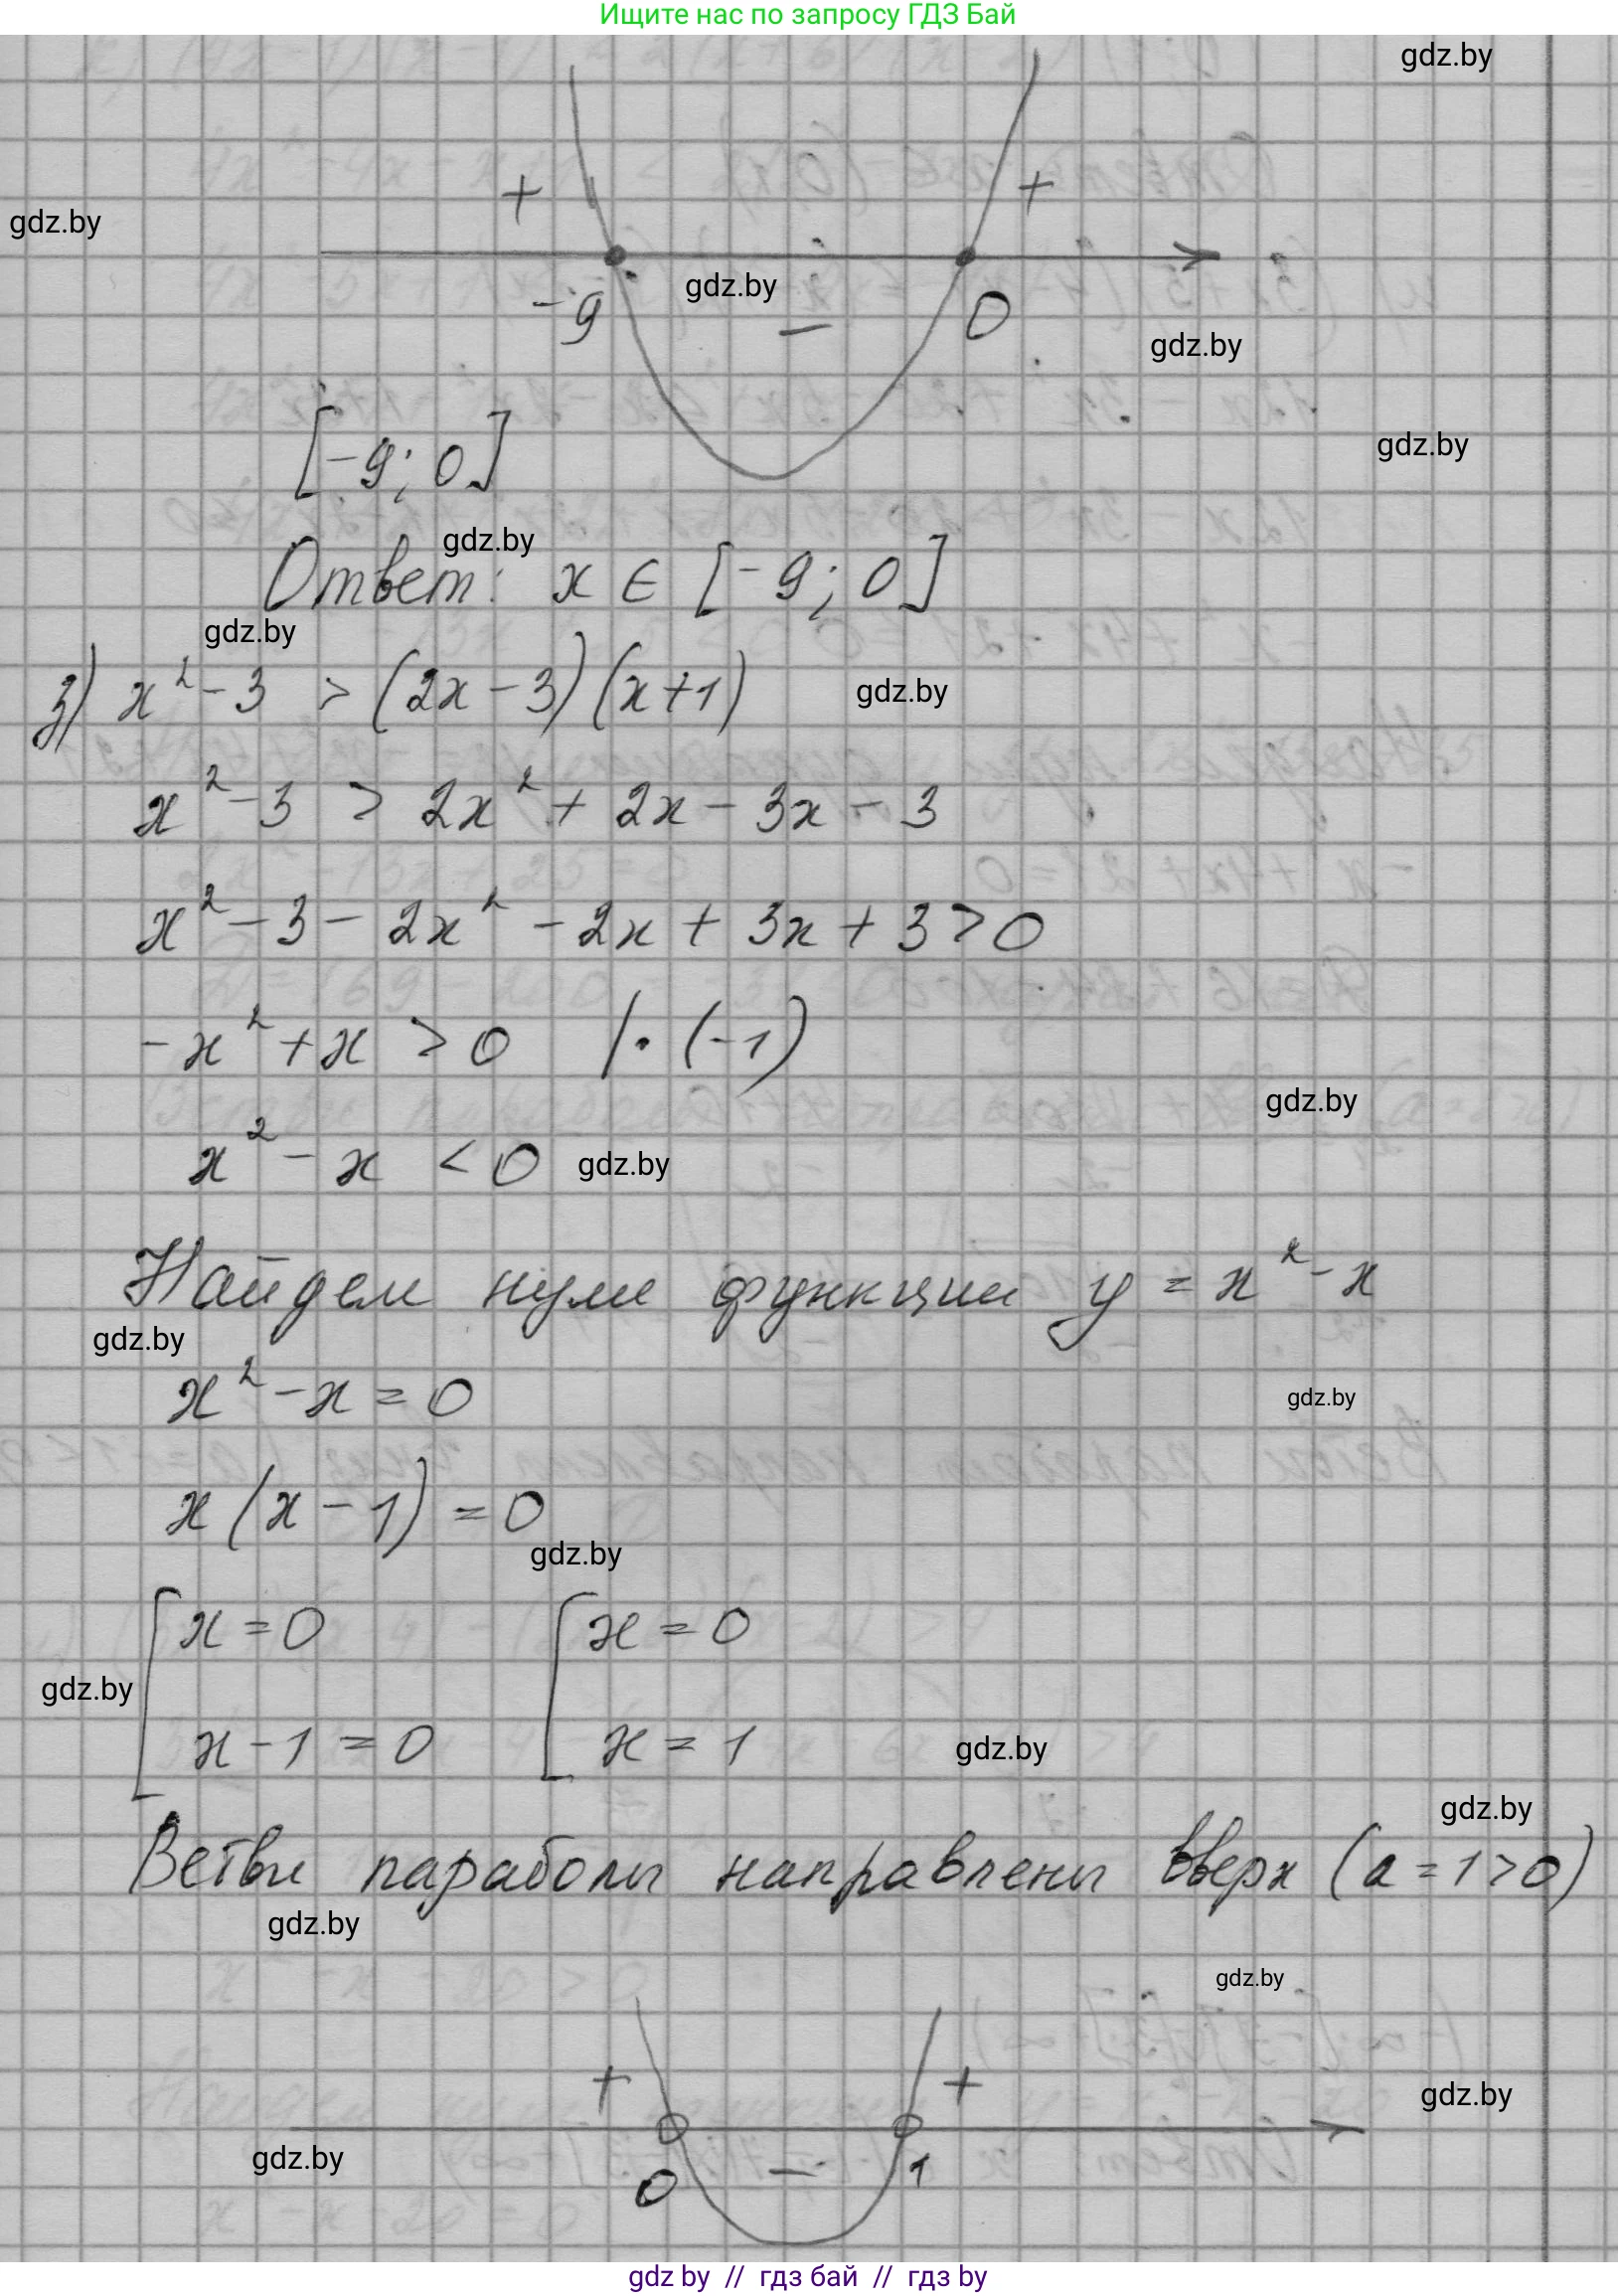 Ищите нас по запросу ГДЗ Бай
gdz.by
+ +
gdz.by
gdz.by
-9 − 0
gdz.by
[-9; 0]
gdz.by
gdz.by
Ответ: x ∈ [-9; 0]
gdz.by
з) x² - 3 > (2x - 3)(x + 1)
gdz.by
x² - 3 > 2x² + 2x - 3x - 3
x² - 3 - 2x² - 2x + 3x + 3 > 0
-x² + x > 0 |· (-1)
gdz.by
x² - x < 0
gdz.by
Найдем нули функции y = x² - x
gdz.by
x² - x = 0
gdz.by
x(x - 1) = 0
gdz.by
[x = 0 [x = 0
gdz.by
x - 1 = 0 x = 1
gdz.by
gdz.by
Ветви параболы направлены вверх (a = 1 > 0)
gdz.by
gdz.by
+ +
gdz.by
gdz.by
0 − 1
gdz by // гдз бай // гдз by